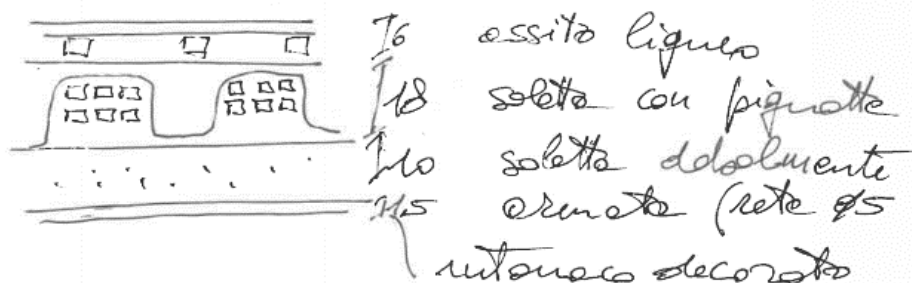 I6 assito ligneo
18 soletta con pignatte
I10 soletta debolmente
I1.5 armata (rete ø5
intonaco decorato